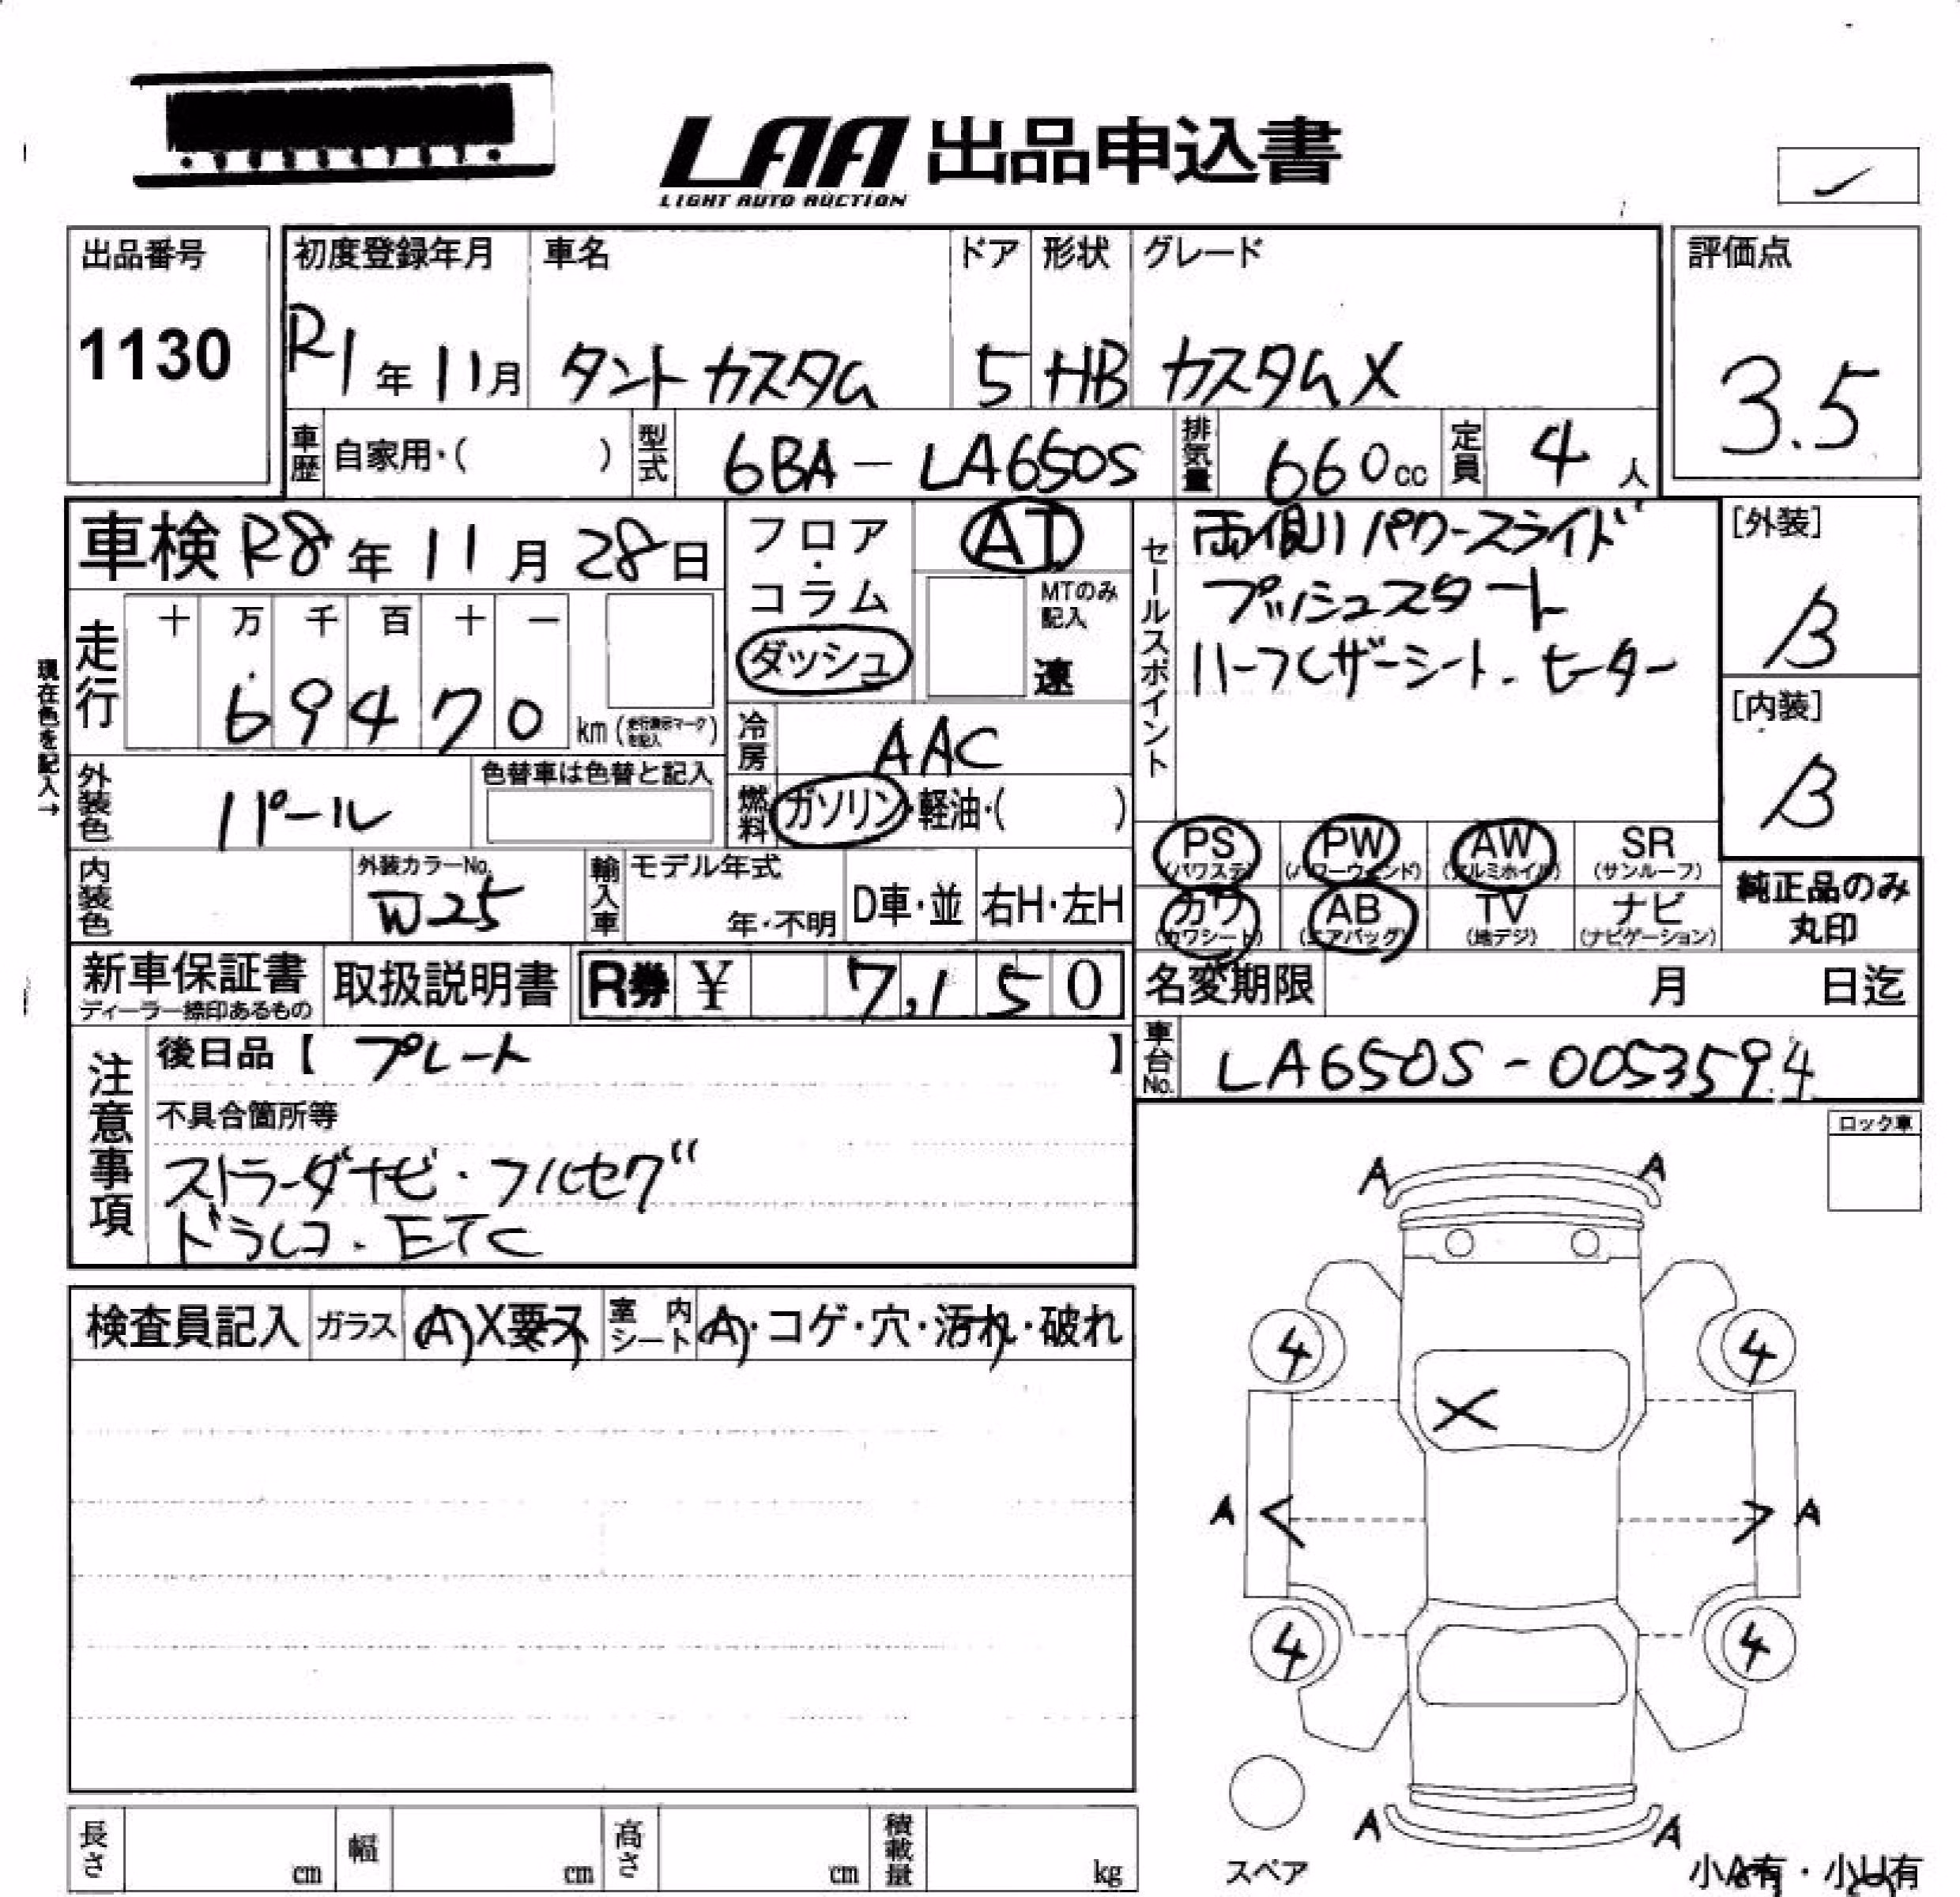 LAA 出品申込書
LIGHT AUTO AUCTION
出品番号
1130
初度登録年月
R1年11月
車名
タントカスタム
ドア
5
形状
HB
グレード
カスタムX
評価点
3.5
車歴 自家用・( )
型式 6BA-LA650S
排気量 660cc
定員 4人
車検 R8年11月28日
走行 十万千百十一
69470 km (走行表示マークを記入)
現在色を記入→
外装色 パール
色替車は色替と記入
内装色
外装カラーNo.
W25
フロア・コラム
ダッシュ
AT
MTのみ記入
速
冷房 AAC
燃料 ガソリン・軽油・( )
輸入車 モデル年式
年・不明
D車・並
右H・左H
セールスポイント
両側パワースライド
プッシュスタート
ハーフレザーシート.ヒーター
[外装]
B
[内装]
B
PS (パワステ)
PW (パワーウィンド)
AW (アルミホイル)
SR (サンルーフ)
カワ (カワシート)
AB (エアバッグ)
TV (地デジ)
ナビ (ナビゲーション)
純正品のみ
丸印
新車保証書
ディーラー捺印あるもの
取扱説明書
R券 ¥ 7,150
名変期限 月 日迄
車台No. LA650S-0053594
注意事項
後日品【 プレート 】
不具合箇所等
ストラーダナビ・フルセグ
ドラレコ.ETC
ロック車
検査員記入
ガラス A X要ス
室内シート A・コゲ・穴・汚れ・破れ
A A
4 4
X
A < > A
4 4
A A
スペア
小A有・小U有
長さ cm
幅 cm
高さ cm
積載量 kg